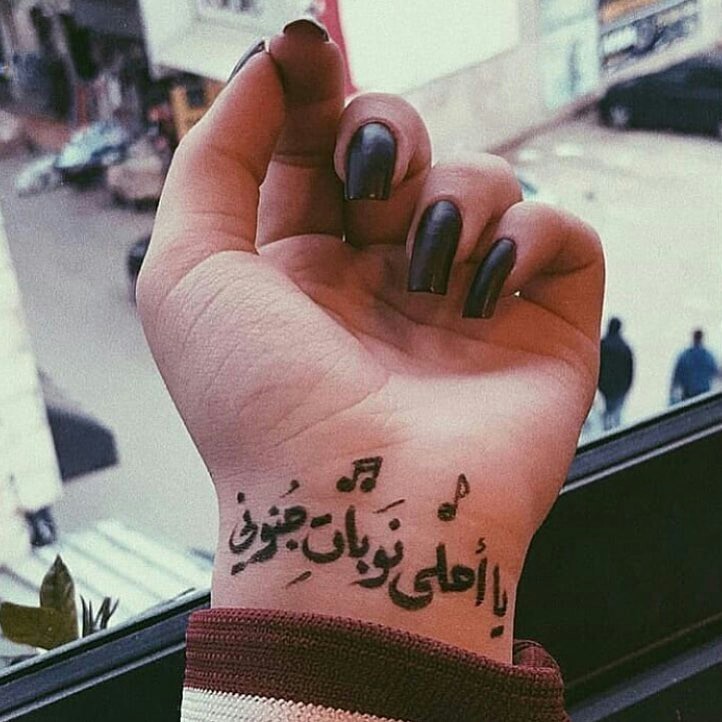 يا أحلى نَوباتِ جُنوني